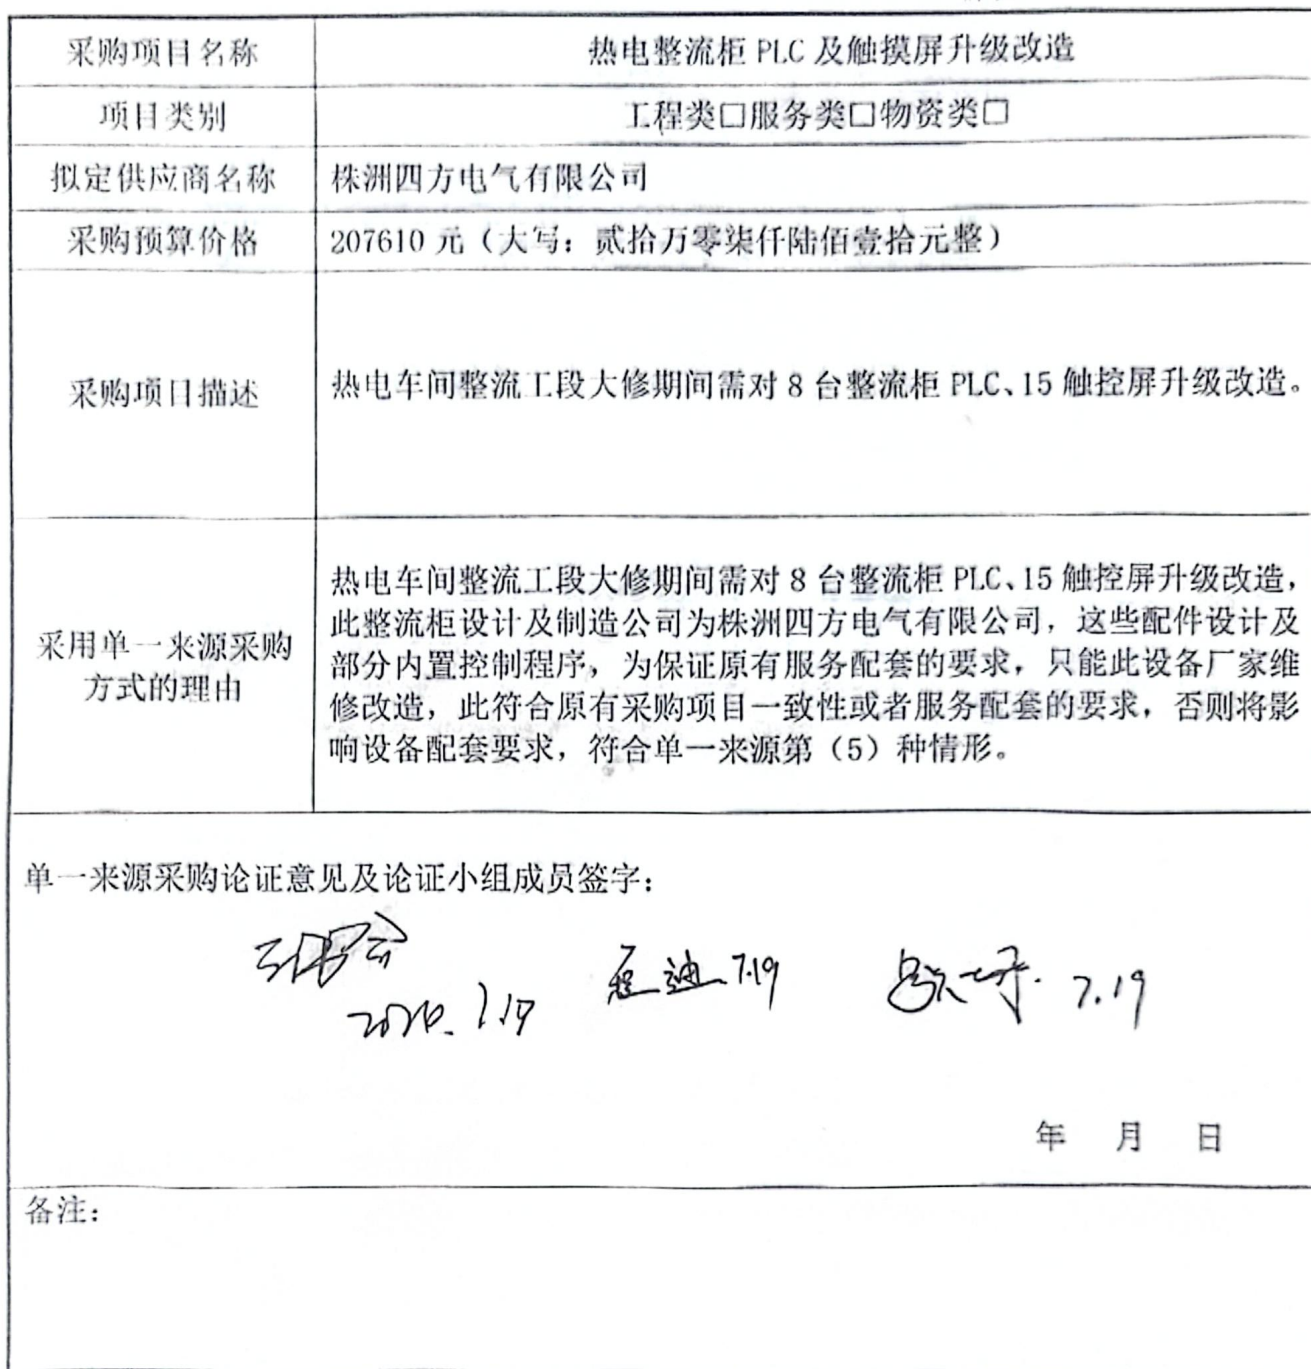 采购项目名称 热电整流柜 PLC 及触摸屏升级改造
项目类别 工程类□服务类□物资类□
拟定供应商名称 株洲四方电气有限公司
采购预算价格 207610 元（大写：贰拾万零柒仟陆佰壹拾元整）
采购项目描述 热电车间整流工段大修期间需对 8 台整流柜 PLC、15 触控屏升级改造。
采用单一来源采购
方式的理由
热电车间整流工段大修期间需对 8 台整流柜 PLC、15 触控屏升级改造，
此整流柜设计及制造公司为株洲四方电气有限公司，这些配件设计及
部分内置控制程序，为保证原有服务配套的要求，只能此设备厂家维
修改造，此符合原有采购项目一致性或者服务配套的要求，否则将影
响设备配套要求，符合单一来源第（5）种情形。
单一来源采购论证意见及论证小组成员签字：
迪 7.19 7.19
年 月 日
备注：